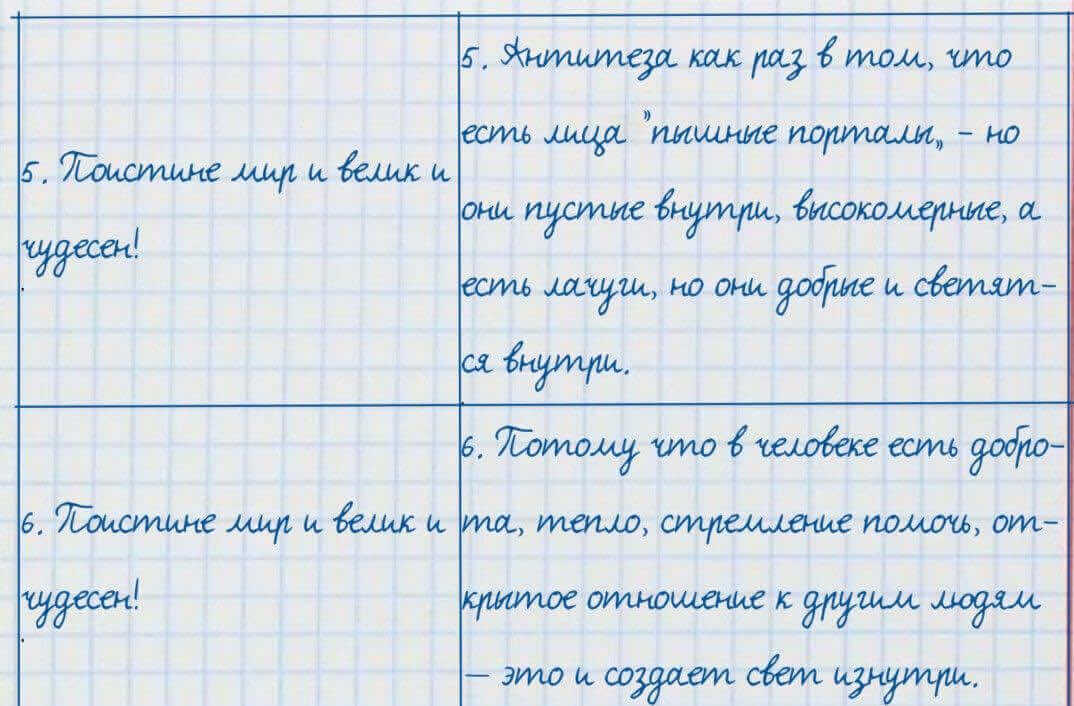 5. Поистине мир и велик и
чудесен!
5. Антитеза как раз в том, что
есть лица "пышные порталы„ - но
они пустые внутри, высокомерные, а
есть лачуги, но они добрые и светят-
ся внутри.
6. Поистине мир и велик и
чудесен!
6. Потому что в человеке есть добро-
та, тепло, стремление помочь, от-
крытое отношение к другим людям
— это и создает свет изнутри.